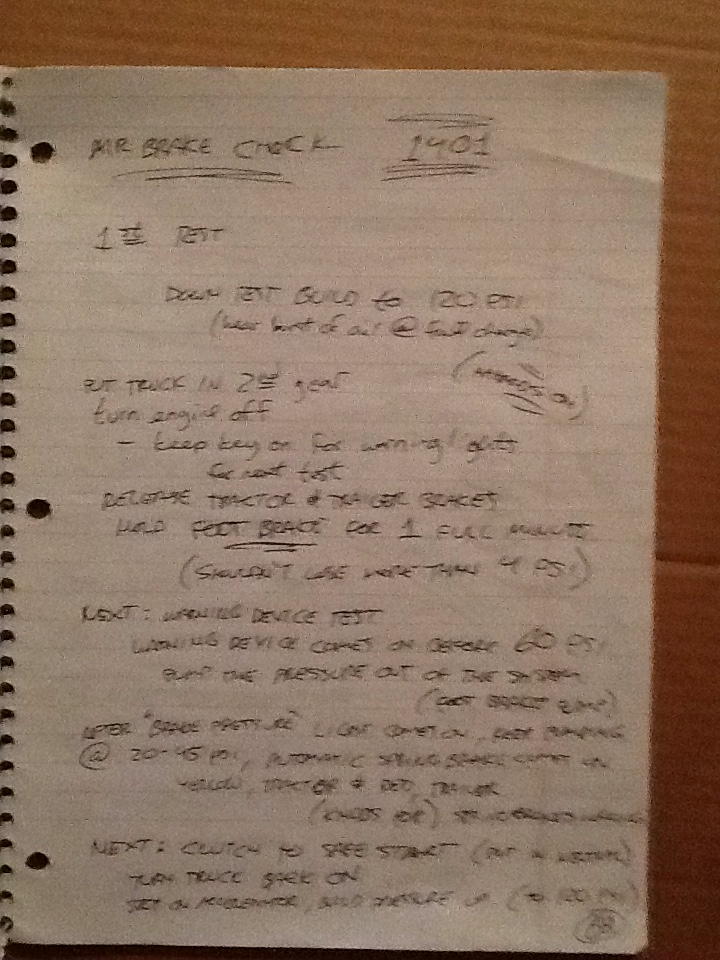 AIR BRAKE CHECK 1401
1ST TEST
DOWN TEST BUILD to 120 PSI
(hear burst of air @ full charge)
PUT TRUCK IN 2ND gear
turn engine off
- keep key on for warning lights
for next test
RELEASE TRACTOR & TRAILER BRAKES
HOLD FOOT BRAKE FOR 1 FULL MINUTE
(SHOULDN'T LOSE MORE THAN 4 PSI)
NEXT: WARNING DEVICE TEST
WARNING DEVICE COMES ON BEFORE 60 PSI
PUMP THE PRESSURE OUT OF THE SYSTEM
(FOOT BRAKE PUMP)
AFTER "BRAKE PRESSURE" LIGHT COMES ON, KEEP PUMPING
@ 20-45 PSI, AUTOMATIC SPRING BRAKE COMES ON
YELLOW, TRACTOR & RED, TRAILER
(KNOBS POP)
NEXT: CLUTCH TO SAFE START (PUT IN NEUTRAL)
TURN TRUCK BACK ON
ON ACCELERATOR, BUILD PRESSURE UP (to 120 PSI)